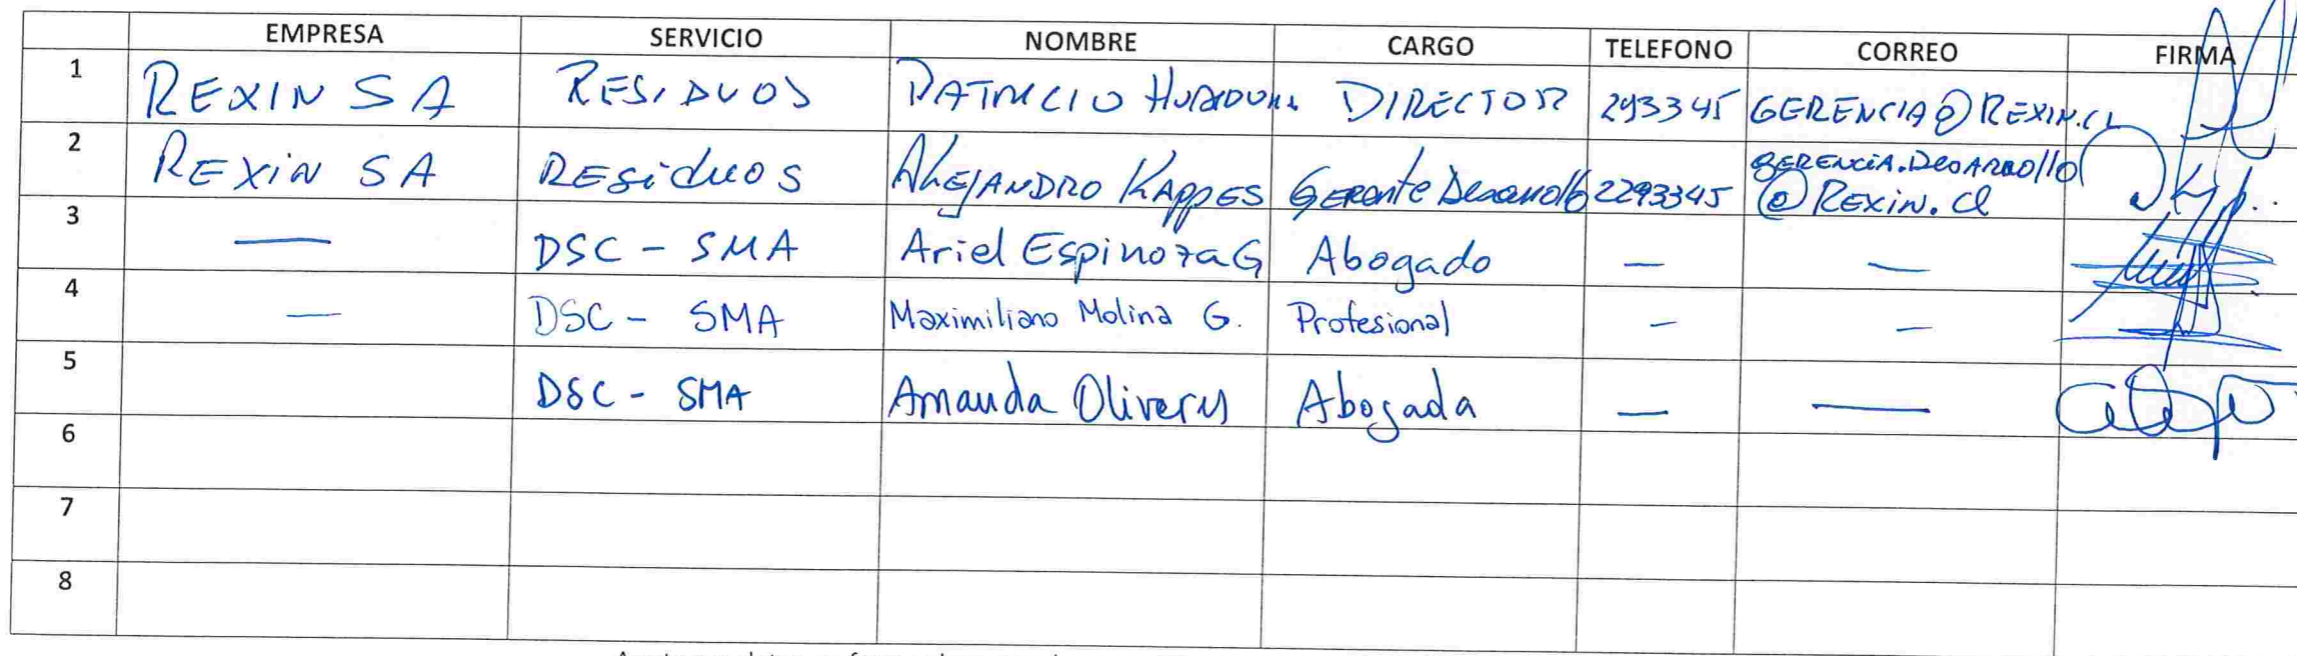 EMPRESA SERVICIO NOMBRE CARGO TELEFONO CORREO FIRMA
1 REXIN SA RESIDUOS PATRICIO DIRECTOR 293345 GERENCIA@REXIN.CL
2 REXiN SA RESiduos ALEJANDRO KAPPES GERENTE Desarrollo 2293345 GERENCiA.DesARRollo
@REXiN.Cl
3 — DSC - SMA Ariel Espinoza G Abogado — —
4 — DSC - SMA Maximiliano Molina G. Profesional — —
5 DSC - SMA Amanda Abogada — —
6
7
8